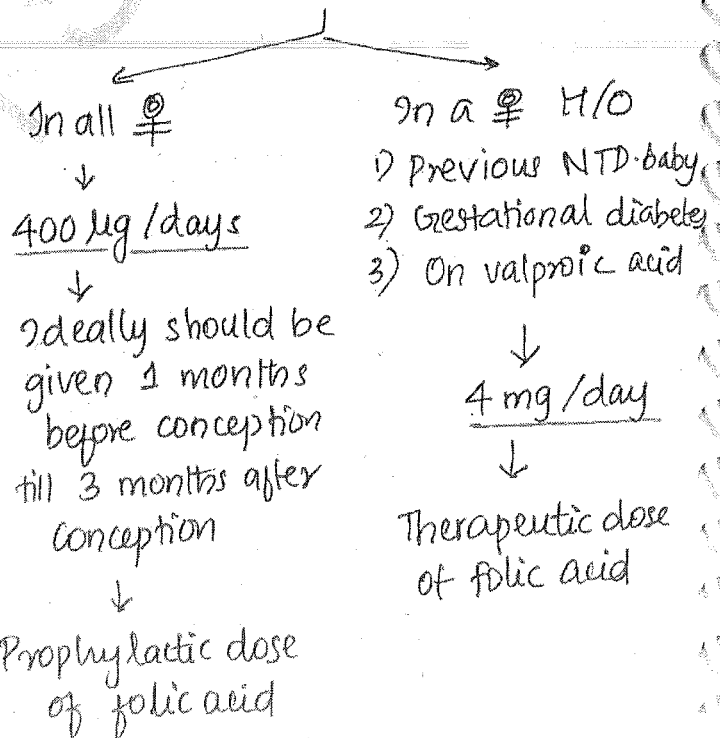 In all ♀
↓
400 µg/days
↓
Ideally should be
given 1 months
before conception
till 3 months after
conception
↓
Prophylactic dose
of folic acid
In a ♀ H/O
1) Previous NTD baby
2) Gestational diabetes
3) On valproic acid
↓
4 mg/day
↓
Therapeutic dose
of folic acid